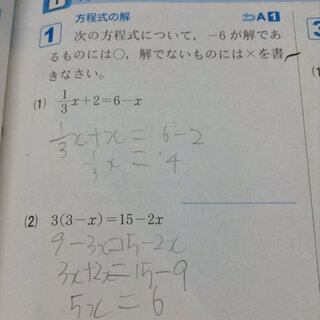 方程式の解
A1
1 次の方程式について，−6が解であ
るものには○，解でないものには×を書
きなさい。
(1) 1/3x+2=6−x
1/3x+x=6-2
1/3x=4
(2) 3(3−x)=15−2x
9-3x=15-2x
3x+2x=15-9
5x=6